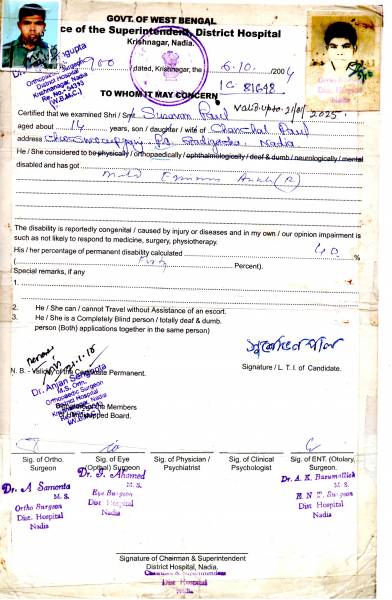 GOVT. OF WEST BENGAL
ce of the Superintendent, District Hospital
Krishnagar, Nadia.
900 / dated, Krishnagar, the 6.10. /2004
IC 81648
TO WHOM IT MAY CONCERN
Valid upto 2025.
Certified that we examined Shri / Smt Paul
aged about 14 years, son / daughter / wife of Chanchal Paul
address Nadia
He / She considered to be physically / orthopaedically / ophthalmologically / deaf & dumb / neurologically / mental
disabled and has got
Mild Equinus Ankle (R)
The disability is reportedly congenital / caused by injury or diseases and in my own / our opinion impairment is
such as not likely to respond to medicine, surgery, physiotherapy.
His / her percentage of permanent disability calculated 40 %
( Forty Percent).
Special remarks, if any
1.
2. He / She can / cannot Travel without Assistance of an escort.
3. He / She is a Completely Blind person / totally deaf & dumb.
person (Both) applications together in the same person)
N. B. - Validity of the Candidate Permanent.
Signature / L. T. I. of Candidate.
Dr. Anjan Sengupta
M.S. Orth.
Orthopaedic Surgeon
District Hospital
Krishnanagar, Nadia
Members
Handicapped Board.
Sig. of Ortho. Surgeon
Sig. of Eye (Opthal) Surgeon
Sig. of Physician / Psychiatrist
Sig. of Clinical Psychologist
Sig. of ENT. (Otolary, Surgeon.
Dr. A Samonta
M. S.
Ortho Surgeon
Dist. Hospital
Nadia
Dr. I. Ahamed
M. S.
Eye Surgeon
Dist Hospital
Nadia
Dr. A. K. Basumallick
M. S.
E N T. Surgeon
Dist. Hospital
Nadia
Signature of Chairman & Superintendent
District Hospital, Nadia.
Chairman & Superintendent
Dist Hospital
Nadia